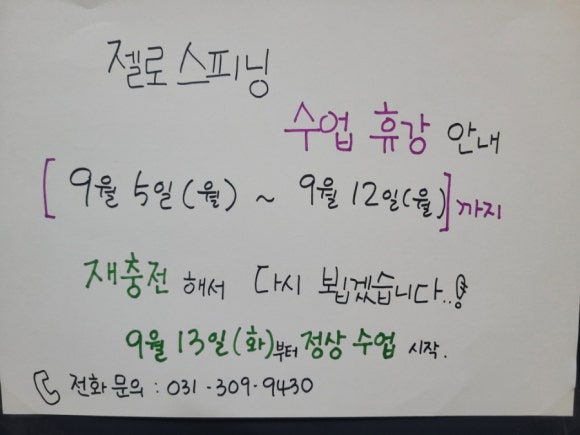 젤로 스피닝
수업 휴강 안내
[ 9월 5일(월) ~ 9월 12일(월)] 까지
재충전 해서 다시 뵙겠습니다..!
9월 13일(화)부터 정상 수업 시작.
전화 문의 : 031-309-9430